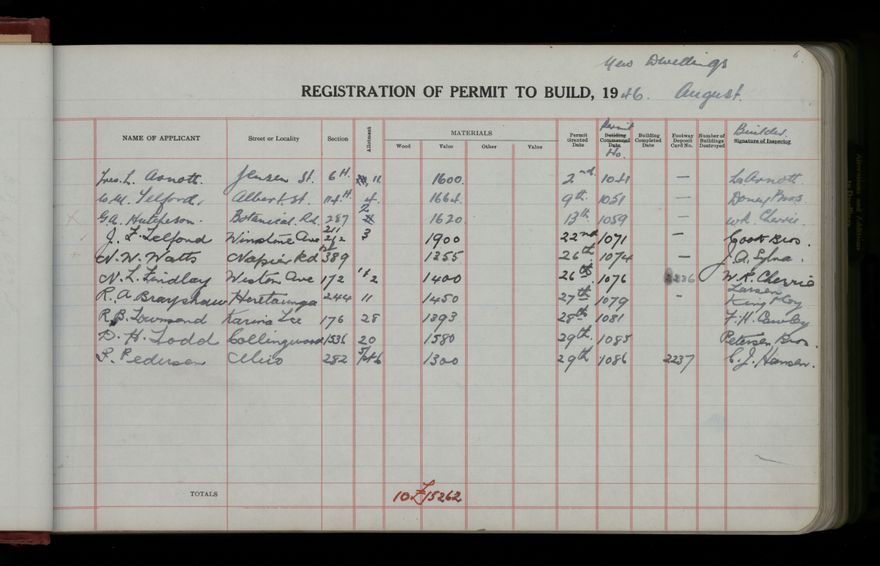 New Dwellings
6.
REGISTRATION OF PERMIT TO BUILD, 1946. August.
NAME OF APPLICANT Street or Locality Section Allotment MATERIALS Wood Value Other Value Permit Granted Date Building Commenced Date Permit No. Building Completed Date Footway Deposit Card No. Number of Buildings Destroyed Builder. Signature of Inspector
L. Arnott. Jensen St. 6H. 11 1600. 2nd 1041 — L. Arnott.
C.M. Telford. Albert St. 114H. 4 1664. 9th 1051 — Doney Bros.
G.A. Hutcheson. Botanical Rd. 287 2 1620. 13th 1059 — W.R. Cherrie.
J. F. Telford Winstone Ave 3 1900 22nd 1071 — Cook Bros.
N. W. Watts Napier Rd 389 1355 26th 1074 — J. A.
N. L. Findlay Weston Ave 172 2 1400 26th 1076 2236 W. R. Cherrie
R. A. Brayshaw Heretaunga 244 11 1450 27th 1079 - Larsen King & Coy
R. B. Townsend Karina Tce 176 28 1393 28th 1081 F. H. Cawley
D. H. Todd Collingwood 1536 20 1580 29th. 1085 Petersen Bros.
P. Pedersen Alico 282 1300 29th 1086 2237 C. J. Hansen.
TOTALS 10 £15262